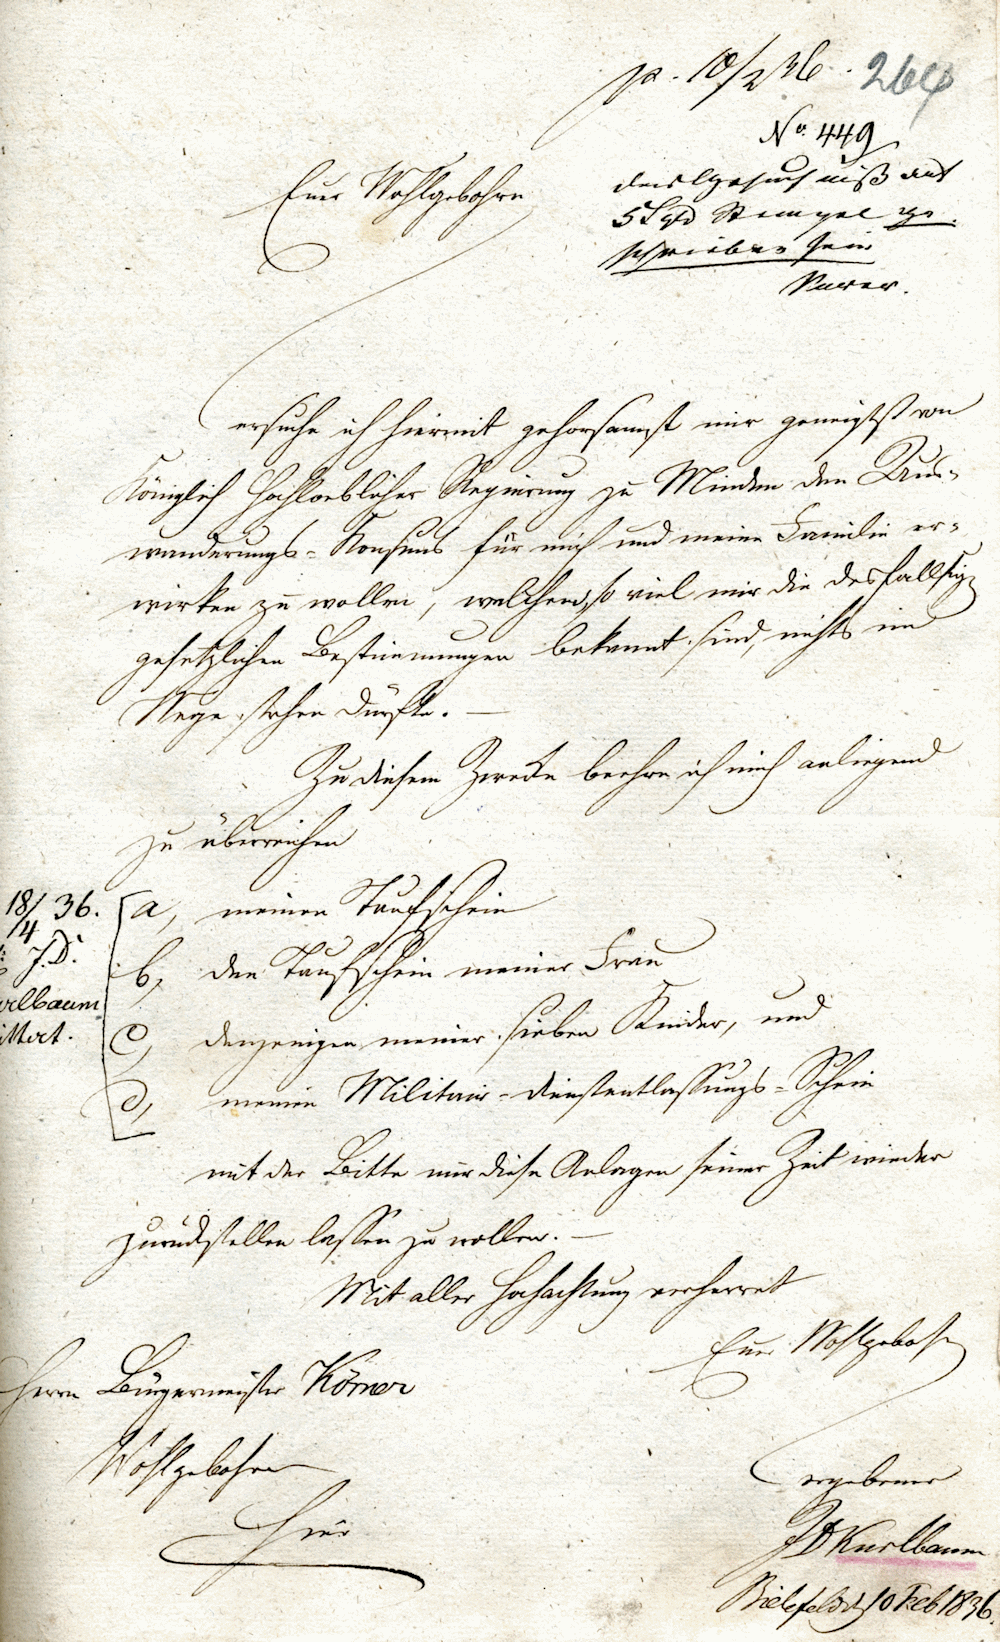 pr. 10/2 36.
264
No. 449
dies Gesuch muß auf
5 Sgr Stempel ge-
schrieben sein
Euer Wohlgebohren
ersuche ich hiermit gehorsamst mir geneigtst von
Königlich Hochloeblicher Regierung zu Minden den Aus-
wanderungs-Konsens für mich und meine Familie er-
wirken zu wollen, welchem, so viel mir die desfallsigen
gesetzlichen Bestimmungen bekannt sind, nichts im
Wege stehen dürfte. —
Zu diesem Zwecke beehre ich mich anliegend
zu überreichen
a, meinen Taufschein
b, den Taufschein meiner Frau
c, denjenigen meiner sieben Kinder, und
d, meinen Militair-dienstentlassungs-Schein
18/4 36.
J.D.
urlbaum
mit der Bitte mir diese Anlagen seiner Zeit wieder
zurückstellen lassen zu wollen. —
Mit aller Hochachtung verharret
Euer Wohlgebohren
Herrn Bürgermeister Körner
Wohlgebohren
Hier
ergebener
JD Kurlbaum
Bielefeld d 10 Feb 1836.